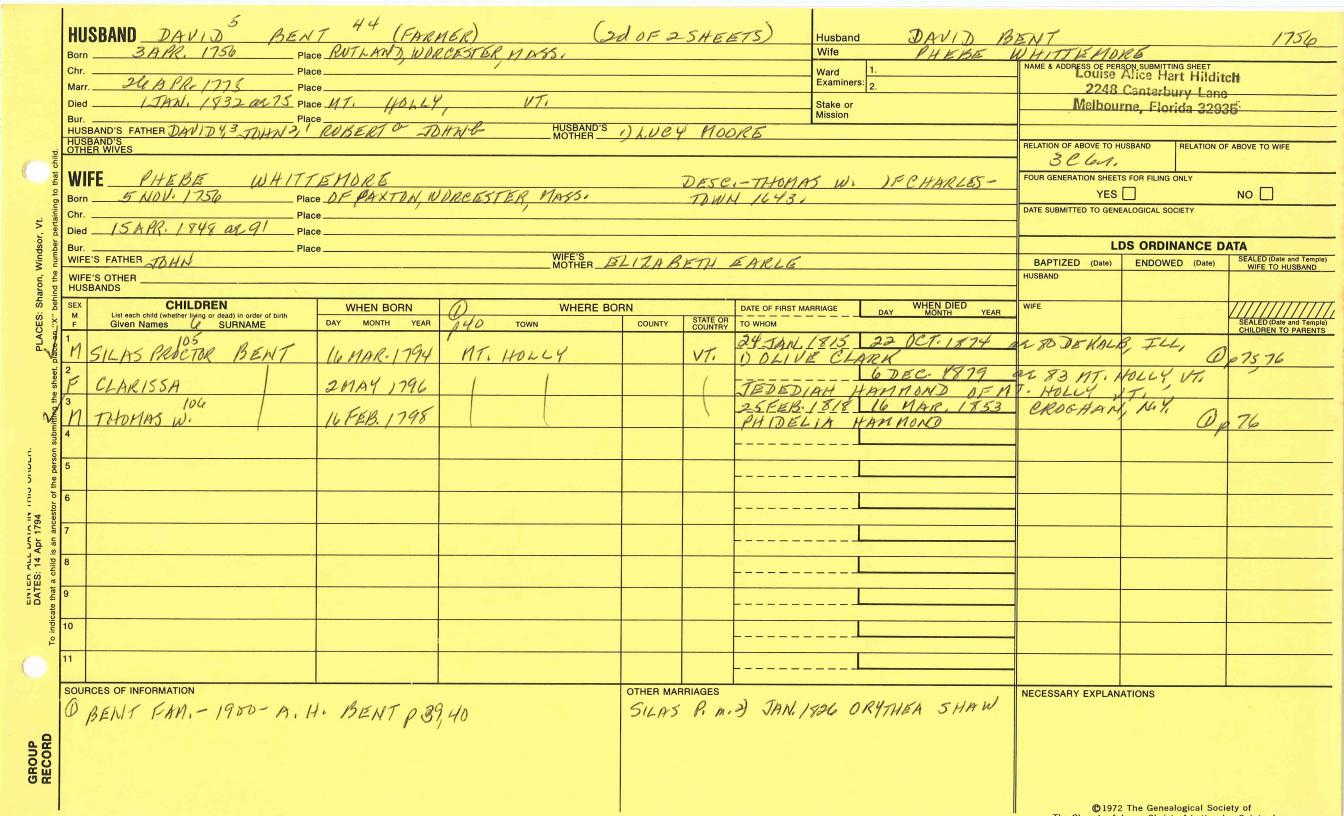 HUSBAND DAVID 5 BENT 44 (FARMER) (2d OF 2 SHEETS)
Born 3 APR. 1756 Place RUTLAND, WORCESTER, MASS.
Chr. Place
Marr. 26 APR. 1775 Place
Died 1 JAN. 1832 ae 75 Place MT. HOLLY, VT.
Bur. Place
HUSBAND'S FATHER DAVID 4, 3 JOHN 2, 1 ROBERT JOHN HUSBAND'S MOTHER 1) LUCY MOORE
HUSBAND'S OTHER WIVES
Husband DAVID BENT 1756
Wife PHEBE WHITTEMORE
Ward Examiners: 1.
2.
Stake or Mission
NAME & ADDRESS OF PERSON SUBMITTING SHEET
Louise Alice Hart Hilditch
2248 Canterbury Lane
Melbourne, Florida 32935
RELATION OF ABOVE TO HUSBAND RELATION OF ABOVE TO WIFE
3C6r.
FOUR GENERATION SHEETS FOR FILING ONLY
YES NO
DATE SUBMITTED TO GENEALOGICAL SOCIETY
WIFE PHEBE WHITTEMORE DESC.-THOMAS W. OF CHARLES-
Born 5 NOV. 1756 Place OF PAXTON, WORCESTER, MASS. TOWN 1643.
Chr. Place
Died 15 APR. 1848 ae 91 Place
Bur. Place
WIFE'S FATHER JOHN WIFE'S MOTHER ELIZABETH EARLE
WIFE'S OTHER HUSBANDS
LDS ORDINANCE DATA
BAPTIZED (Date) ENDOWED (Date) SEALED (Date and Temple) WIFE TO HUSBAND
HUSBAND
WIFE
SEALED (Date and Temple) CHILDREN TO PARENTS
SEX M F
CHILDREN
List each child (whether living or dead) in order of birth
Given Names 6 SURNAME
WHEN BORN
DAY MONTH YEAR
① p40
WHERE BORN
TOWN COUNTY STATE OR COUNTRY
DATE OF FIRST MARRIAGE
TO WHOM
WHEN DIED
DAY MONTH YEAR
1 M SILAS PROCTOR 105 BENT 16 MAR. 1794 MT. HOLLY VT. 24 JAN. 1815 22 OCT. 1874 ae 80 DEKALB, ILL,
1) OLIVE CLARK ① p75,76
2 F CLARISSA 2 MAY 1796 6 DEC. 1879 ae 83 MT. HOLLY, VT.
JEDEDIAH HAMMOND OF MT. HOLLY VT.
3 M THOMAS W. 106 16 FEB. 1798 25 FEB. 1818 16 MAR. 1853 CROGHAN, N.Y.
PHIDELIA HAMMOND ① p76
4
5
6
7
8
9
10
11
SOURCES OF INFORMATION
① BENT FAM.- 1900- A. H. BENT p 39,40
OTHER MARRIAGES
SILAS P. m. 2) JAN. 1826 ORYTHEA SHAW
NECESSARY EXPLANATIONS
©1972 The Genealogical Society of
PLACES: Sharon, Windsor, Vt.
DATES: 14 Apr 1794
To indicate that a child is an ancestor of the person submitting the sheet, place an "X" behind the number pertaining to that child.
GROUP RECORD